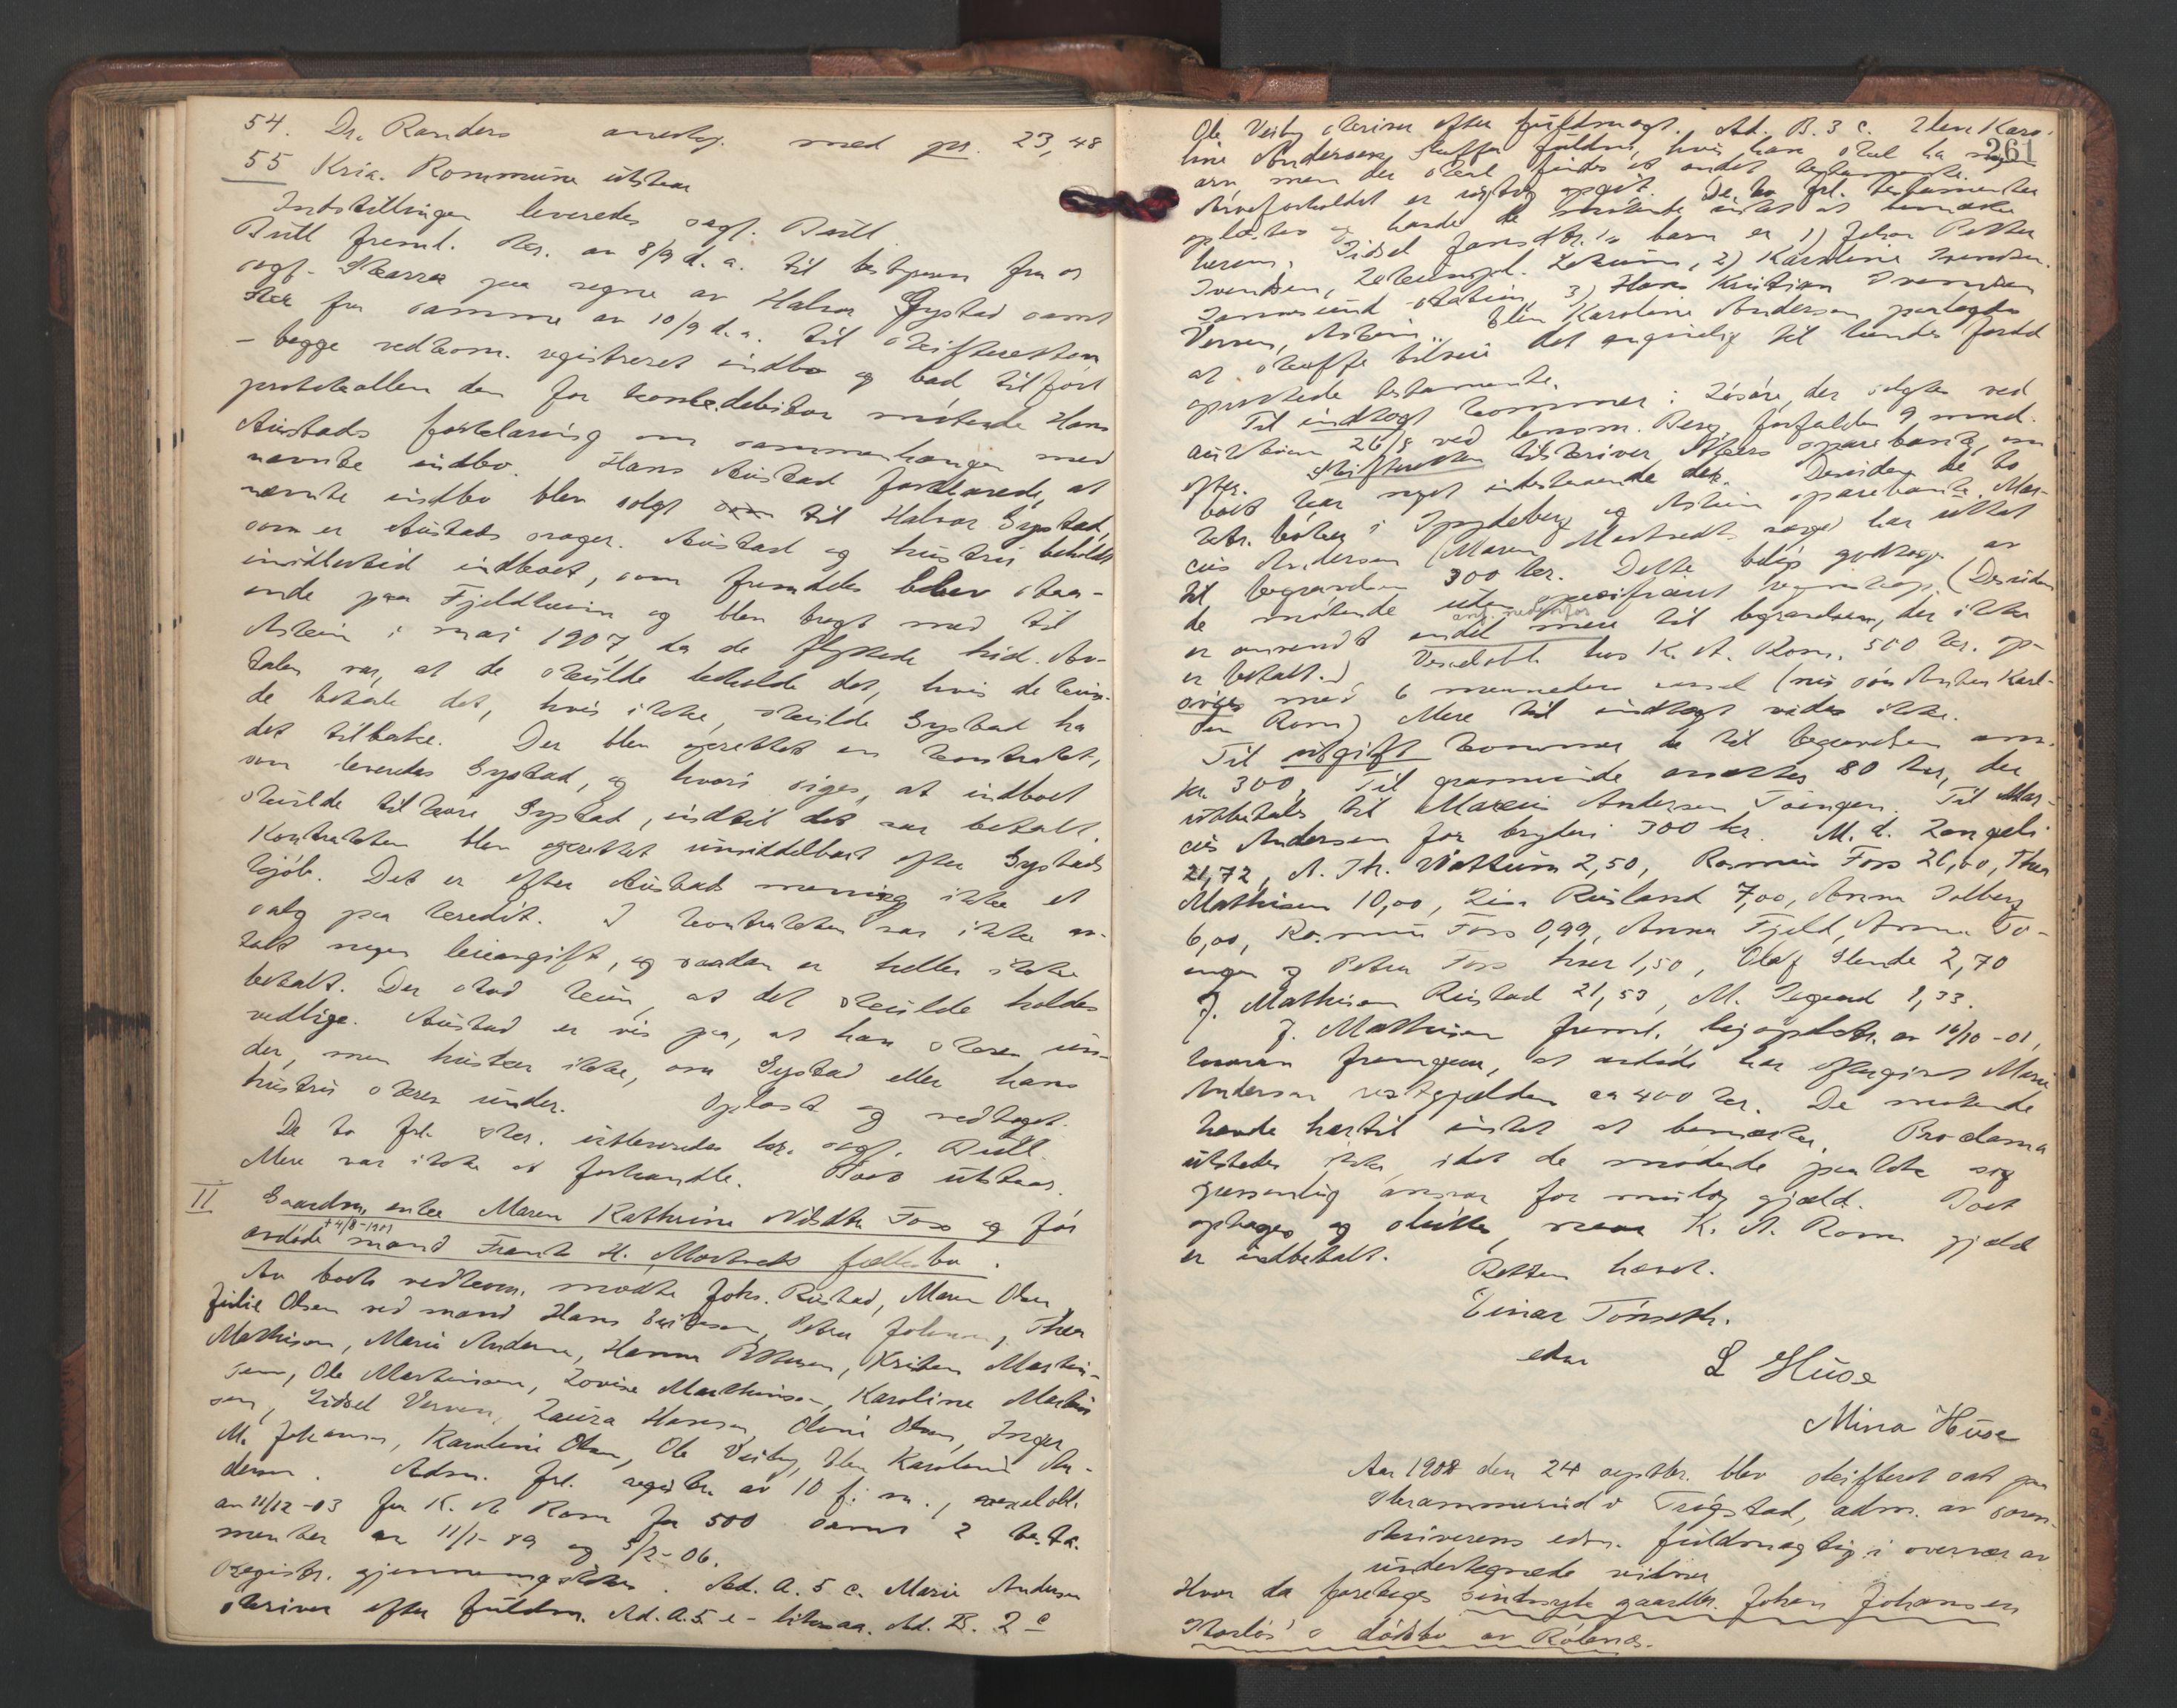 54. Dr. Randers anerkj. med pr. 23,48
55 Kria. Kommune utstaar
Indstillingen leveredes sagf. Bull.
Bull freml. skr. av 8/9 d. a. til bestyreren fra os
sagf. Skarra paa vegne av Halvor Gystad samt
skr fra samme av 10/9 d. a. til skifteretten
– begge vedkom. registreret indbo og bad tilført
protokollen den for konk.debitor møtende Hans
Austads forklaring om sammenhængen med
nævnte indbo. Hans Austad forklarede, at
nævnte indbo blev solgt til Halvor Gystad,
som er Austads svoger. Austad og hustru beholdt
imidlertid indboet, som fremdeles blev staa-
ende paa Fjeldheim og blev bragt med til
Askim i mai 1907, da de flyttede hid. Av-
talen var, at de skulde beholde det, hvis de kun-
de betale det, hvis ikke, skulde Gystad ha
det tilbake. Der blev oprettet en kontrakt,
som leveredes Gystad, og hvori siges, at indboet
skulde tilhøre Gystad, indtil det var betalt.
Kontrakten blev oprettet umiddelbart efter Gystads
kjøb. Det er efter Austads mening ikke et
salg paa kredit. I kontrakten var ikke av-
talt nogen leieavgift, og saadan er heller ikke
betalt. Der stod kun, at det skulde holdes
vedlige. Austad er vis paa, at han skrev un-
der, men husker ikke, om Gystad eller hans
hustru skrev under. Oplæst og vedtaget.
De to frl. skr. utleveredes hr. sagf. Bull.
Mere var ikke at forhandle. Boet utstaar.
II Gaardm. enke Maren Kathrine Nilsdtr Foss og før
avdøde +4/8-1901 mand Frantz H. Mostvedts fællesbo.
Av boets vedkom. møtte Johs. Rustad, Maren Olsen
Julie Olsen ved mand Hans Eriksen, Petra Johnsen, Thea
Mathisen, Marie Andersen, Hanna Pettersen, Kristen Martin-
sen, Ole Martinsen, Lovise Marthinsen, Karoline Martin
sen, Sidsel Verven, Laura Hansen, Oline Olsen, Inger
M. Johansen, Karoline Olsen, Ole Veiby, Elen Karoline An-
dersen. Adm. frl. registr. av 10 f. m., vexelobl.
av 11/12-03 fra K. A. Rom for 500 samt 2 testa-
menter av 11/1-89 og 5/2-06.
Registr. gjennemgikkes. Ad. A. 5 c. Marie Andersen
skriver efter fuldm. Ad. A. 5 e – likesaa. Ad. B. 2 c
261
Ole Veiby skriver efter fuldmagt. Ad. B. 3 c. Elen Karo-
line Andersen skaffer fuldm., hvis han skal ha nogen
arv, men der skal findes et andet testamente.
Arveforholdet er rigtig opgit. De to frl. testamenter
oplæstes og havde de møtende intet at bemerke
herom. Sidsel Jansdtr.'s barn er 1) Johan Petter
Svendsen, 2) Karoline Svendsen.
Sannesund station, 3) Hans Kristian Svendsen
Verven, Askim. Elen Karoline Andersen paalagdes
at skaffe tilveie det angivelig til hende forhd
oprettede testamente.
Til indtægt kommer: Løsøre, der solgtes ved
auktion 26/8 ved lensm. Berg, forfalden 9 mnd.
efter. Skifteretten tilskriver Akers sparebank, om
boet har noget indestaaende der. Desuden de to
bøker i Spydeberg og Askim sparebank. Mar-
cus Andersen (Maren Mostvedts svoger) har uttat
til begravelsen 300 kr. Dette beløp godtages av
de møtende uten specificeret regnskap. (Desuden
er anvendt ant. nedenfor endel mere til begravelsen, der ikke
er betalt.) Vexelobl. hos K. A. Rom. 500 kr. op-
siges med 6 maaneders varsel (nu søn Anton Karl-
sen Rom) Mere til indtægt vides ikke.
Til utgift kommer de til begravelsen anv.
kr. 300. Til gravminde avsættes 80 kr, der
utbetales til Marcus Andersen Toengen. Til Mar-
cus Andersen for bryderi 300 kr. M. d. Langeli
21,72, A. Th. Nattum 2,50, Rasmus Foss 26,00, Thea
Mathisen 10,00, Lina Rusland 7,00, Anna Solberg
6,00, Rasmus Foss 0,99, Anna Fjeld, Anna To-
engen og Petra Foss hver 1,50, Olaf Slende 2,70
J. Mathisen Rustad 21,53, M. Segaard 1,33.
J. Mathisen freml. av 16/10-01,
hvorav fremgaar, at avdøde har eftergivet Marie
Andersen restgjælden ca 400 kr. De møtende
havde hertil intet at bemerke. Proclama
utstedes ikke, idet de møtende paatok sig
gjensidig ansvar for mulig gjæld. Boet
optages og sluttes, naar K. A. Roms gjæld
er indbetalt.
Retten hævet.
Einar Tønseth.
edsv L Huse
Mina Huse
Aar 1908 den 24 septbr. blev skifteret sat paa
Skrammerud i Trøgstad, adm. av soren-
skriverens edsv. fuldmægtig i overvær av
undertegnede vidner
Hvor da foretages sindssyk gaardbr. Johan Johansen
dødsbo av